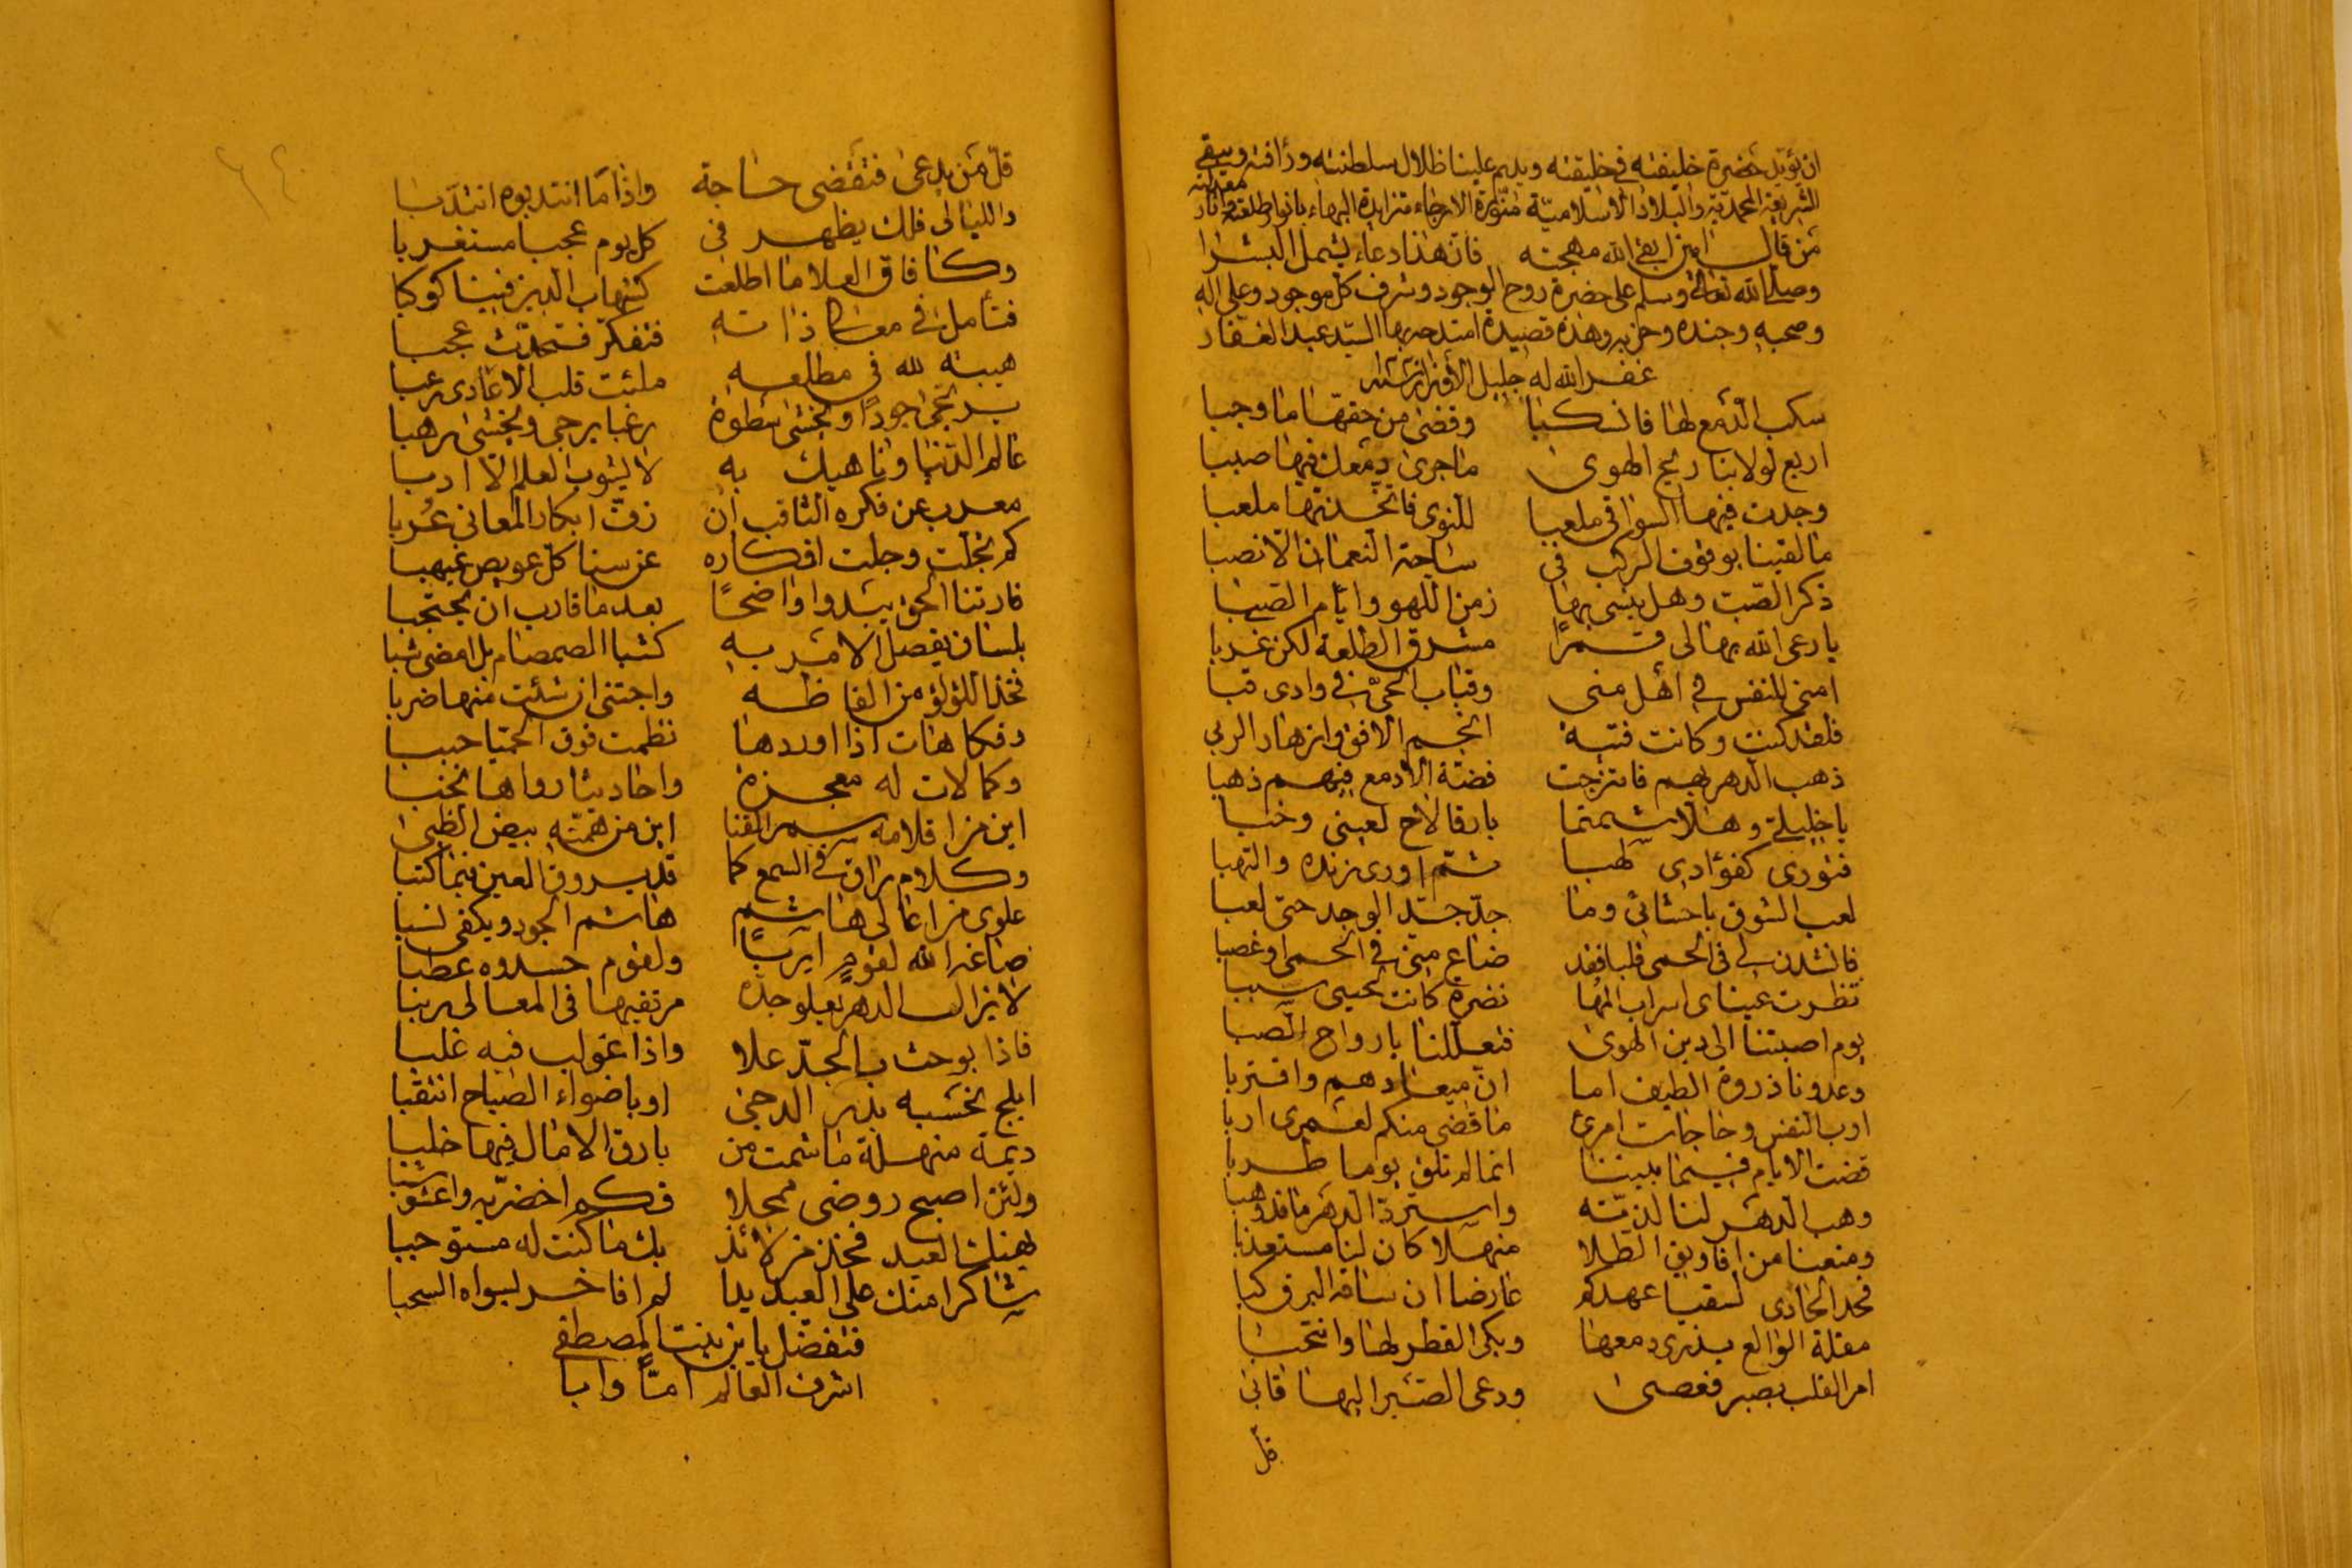 ان يؤيد حضرة خليفته في خليقته ويديم علينا ظلال سلطنته ورأفته ويبقي
للشريعة المحمدية والبلاد الاسلامية منورة الارجاء متزايدة البهاء بانوار طلعته وآثار معدلته
من قال امين ابقى الله مهجته فان هذا دعاء يشمل البشرا
وصلى الله تعالى وسلم على حضرة روح الوجود وشرف كل موجود وعلى اله
وصحبه وجنده وحزبه وهذه قصيدة امتدحه بها السيد عبد الغفار
غفر الله له جليل الأوزار
سكب الدمع لها فانسكبا وقضى من حقها ما وجبا
اربع لولا تباريح الهوى ما جرى دمعك فيها صببا
وجدت فيها السوافي ملعبا للنوى فاتخذتها ملعبا
ما لقينا بوقوف الركب في ساحة النعمان الا نصبا
ذكر الصب وهل ينسى بها زمن اللهو وايام الصبا
يا رعى الله بها لي قمرا مشرق الطلعة لكن غربا
امنى للنفس في اهل منى وقباب الحي في وادي قبا
فلقد كنت وكانت فتية انجم الافق وازهار الربى
ذهب الدهر بهم فامتزجت فضة الادمع فيهم ذهبا
يا خليلي وهلا شمتما بارقا لاح لعيني وخبا
فتورى كفؤادي لهبا ثم اورى زنده والتهبا
لعب الشوق باحشائي وما جد جد الوجد حتى لعبا
فانشدن لي في الحمى قلبا فقد ضاع مني في الحمى او غصبا
نظرت عيناي اسراب المها نضرة كانت لحيني سببا
يوم اصبتنا الى دين الهوى فتعللنا بارواح الصبا
وعدونا ذروة الطيف اما ان ميعادهم واقتربا
ارب النفس وحاجات امرئ ما قضى منكم لعمري اربا
قضت الايام فيما بيننا انما لم تلق يوما طربا
وهب الدهر لنا لذته واسترد الدهر ما قد وهبا
ومنعنا من افاويق الطلا منهلا كان لنا مستعذبا
فحدا الحادي لسقيا عهدكم عارضا ان ساقه البرق كبا
مقلة الوالع يذري دمعها وبكى القطر لها وانتحبا
امر القلب بصبر فعصى ودعى الصبر اليها فابى
قل
قل من يدعى فتقضى حاجة واذا ما انتدبوه انتدبا
والليالي فلك يظهر في كل يوم عجبا مستغربا
وكافاق العلا ما اطلعت كشهاب الدين فينا كوكبا
فتأمل في معاني ذاته فتفكر فتحدث عجبا
هيبة لله في مطلعه ملئت قلب الاعادي رعبا
يرتجى جودا ويخشى سطوة رغبا يرجى ويخشى رهبا
عالم الدنيا وناهيك به لا يشوب العلم الا ادبا
معرب عن فكره الثاقب ان زف ابكار المعاني عربا
كم تجلت وجلت افكاره عن سنا كل عويص غيهبا
فارتنا الحق يبدوا واضحا بعد ما قارب ان يحتجبا
بلسان يفصل الامر به كشبا الصمصام بل امضى شبا
فخذ اللؤلؤ من الفاظه واجتني ان شئت منها ضربا
وفكاهات اذا اوردها نظمت فوق الحميا حببا
وكمالات له معجزة واحاديثا رواها نخبا
اين من اقلامه سمر القنا اين من همته بيض الظبى
وكلام راق في السمع كما قد يروق العين فيما كتبا
علوي من اعالي هاشم هاشم الجود ويكفي نسبا
صاغه الله لقوم اربا ولقوم حسدوه عطبا
لا يزال الدهر يعلو جده مرتقيها في المعالي رتبا
فاذا بوحث بالجد علا واذا غولب فيه غلبا
ابلج تحسبه بدر الدجى او باضواء الصباح انتقبا
ديمة منهلة ما شمت من بارق الامال فيها خلبا
ولئن اصبح روضي ممحلا فكم اخضر به واعشوشبا
يهنك العيد فخذ من لائذ بك ما كنت له مستوجبا
شاكرا منك على العبد يدا لم افاخر لسواه السحبا
فتفضل يا ابن بنت المصطفى
اشرف العالم اما وابا